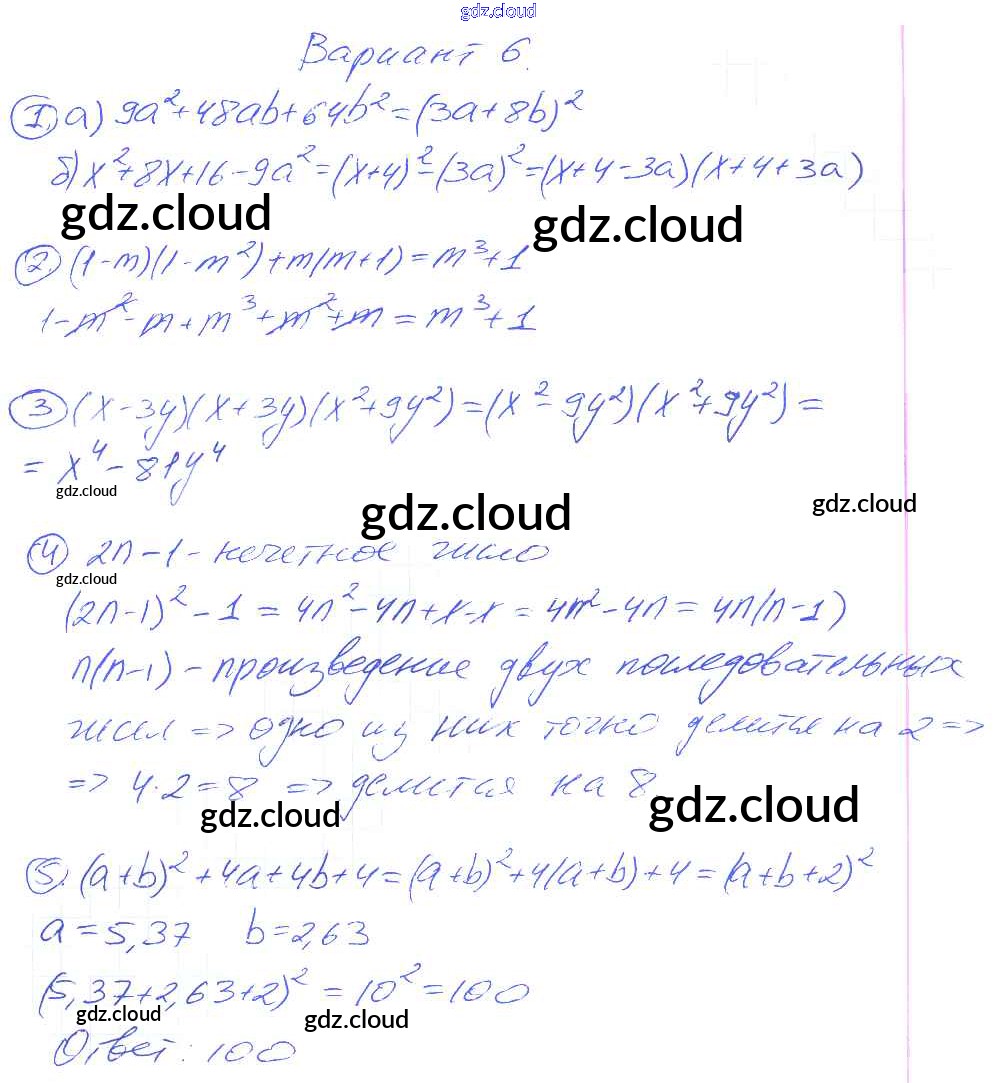 gdz.cloud
Вариант 6.
1. а) 9a²+48ab+64b²=(3a+8b)²
б) x²+8x+16-9a²=(x+4)²-(3a)²=(x+4-3a)(x+4+3a)
gdz.cloud gdz.cloud
2. (1-m)(1-m²)+m(m+1)=m³+1
1-m²-m+m³+m²+m=m³+1
3 (x-3y)(x+3y)(x²+9y²)=(x²-9y²)(x²+9y²)=
= x⁴-81y⁴
gdz.cloud gdz.cloud gdz.cloud
4 2n-1-нечетное число
gdz.cloud
(2n-1)²-1=4n²-4n+1-1=4n²-4n=4n(n-1)
n(n-1)-произведение двух последовательных
чисел => одно из них точно делится на 2 =>
=> 4·2=8 => делится на 8.
gdz.cloud gdz.cloud
5. (a+b)²+4a+4b+4=(a+b)²+4(a+b)+4=(a+b+2)²
a=5,37 b=2,63
(5,37+2,63+2)²=10²=100
gdz.cloud gdz.cloud
Ответ: 100